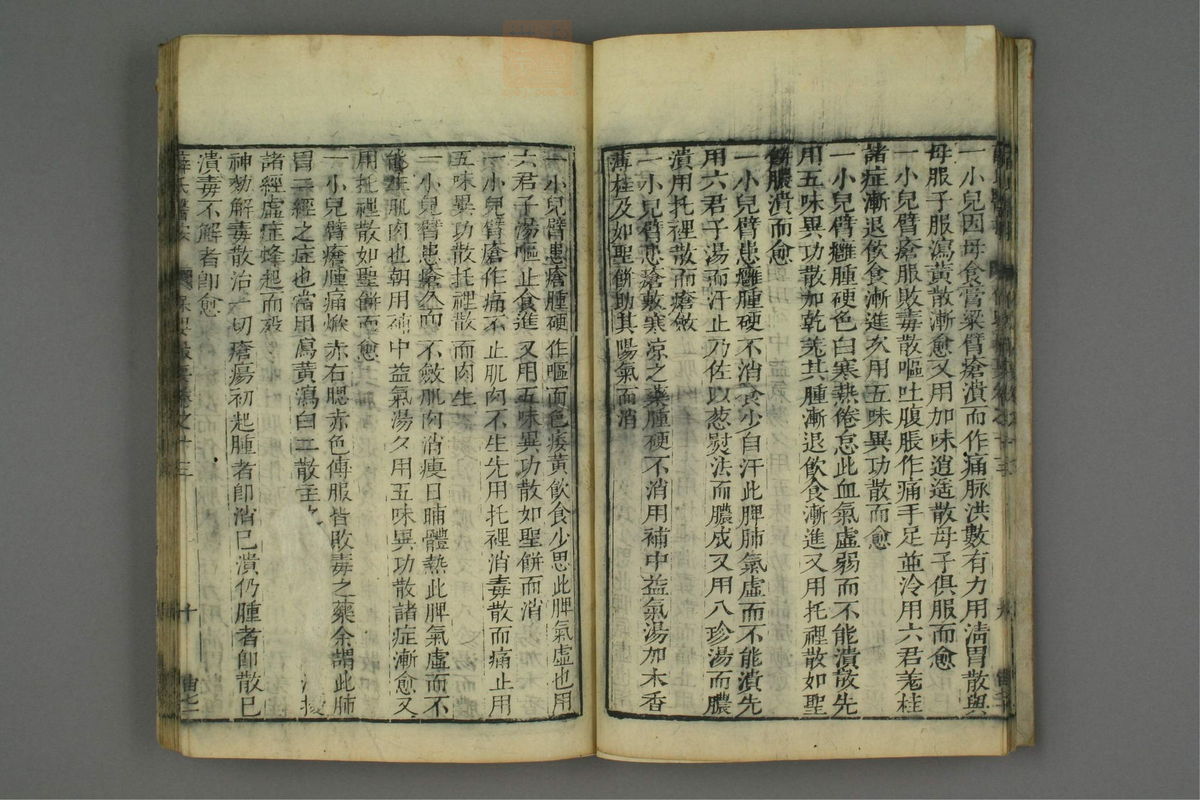 一小兒因母食膏粱臂瘡潰而作痛脉洪數有力用淸胃散與
母服子服瀉黃散漸愈又用加味逍遙散母子俱服而愈
一小兒臂瘡服敗毒散嘔吐腹脹作痛手足並冷用六君羗桂
諸症漸退飲食漸進次用五味異功散而愈
一小兒臂癰腫硬色白寒熱倦怠此血氣虛弱而不能潰散先
用五味異功散加乾羗其腫漸退飲食漸進又用托裡散如聖
餅膿潰而愈
一小兒臂患癰腫硬不消食少自汗此脾肺氣虛而不能潰先
用六君子湯而汗止乃佐以葱熨法而膿成又用八珍湯而膿
潰用托裡散而瘡斂
一小兒臂患瘡敷寒凉之藥腫硬不消用補中益氣湯加木香
薄桂及如聖餅助其陽氣而消
一小兒臂患瘡腫硬作嘔面色痿黃飲食少思此脾氣虛也用
六君子湯嘔止食進又用五味異功散如聖餅而消
一小兒臂瘡作痛不止肌肉不生先用托裡消毒散而痛止用
五味異功散托裡散而肉生
一小兒臂患瘡久而不斂肌肉消瘦日晡體熱此脾氣虛而不
能生肌肉也朝用補中益氣湯夕用五味異功散諸症漸愈又
用托裡散如聖餅而愈
一小兒臂瘡腫痛焮赤右腮赤色傳服皆敗毒之藥余謂此肺
胃二經之症也當用瀉黃瀉白二散主
諸經虛症蜂起而歿
神効解毒散治一切瘡瘍初起腫者卽消已潰仍腫者卽散已
潰毒不解者卽愈
薛氏醫案 保嬰撮要卷之十三 十